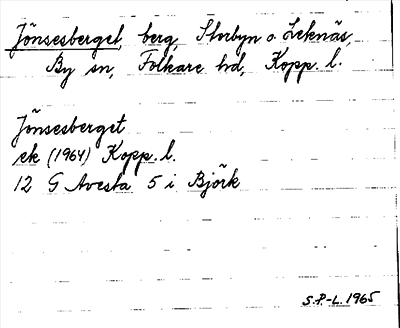 Jönsesberget, berg, Storbyn o. Leknäs,
By sn, Folkare hd, Kopp. l.
Jönsesberget
ek (1964) Kopp. l.
12 G Avesta 5 i Björk
S.P-L. 1965